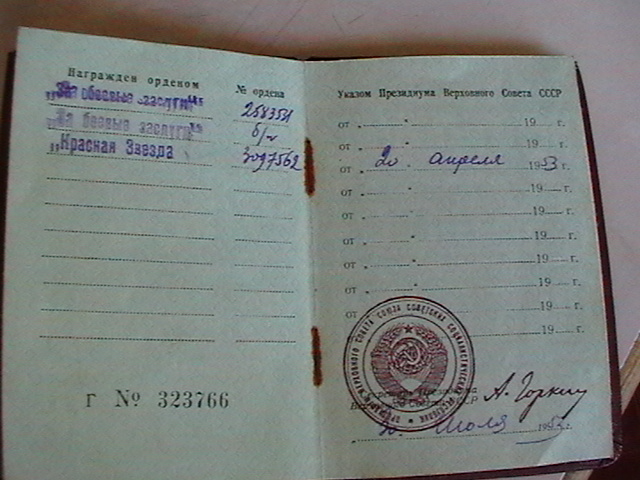 Награжден орденом
№ ордена
„За боевые заслуги" 258351
„За боевые заслуги" б/н
„Красная Звезда 3097562
г № 323766
Указом Президиума Верховного Совета СССР
от „ " 19 г.
от „ " 19 г.
от „ 20 " апреля 1953 г.
от „ " 19 г.
от „ " 19 г.
от „ " 19 г.
от „ " 19 г.
от „ " 19 г.
от 19 г.
19 г.
Президиума
А. Горкин
июля 1953 г.
ПРЕЗИДИУМ ВЕРХОВНОГО СОВЕТА СОЮЗА СОВЕТСКИХ СОЦИАЛИСТИЧЕСКИХ РЕСПУБЛИК